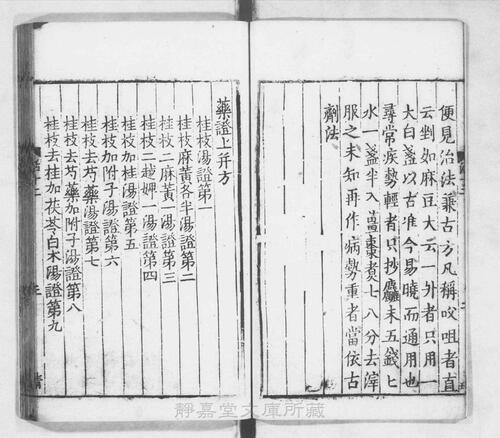 便見治法兼古方凡稱㕮咀者直
云剉如麻豆大云一升者只用一
大白盞以古准今易曉而通用也
尋常疾勢輕者只抄麤末五錢匕
水一盞半入薑棗煮七八分去滓
服之未知再作病勢重者當依古
劑法
藥證上并方
桂枝湯證第一
桂枝麻黃各半湯證第二
桂枝二麻黃一湯證第三
桂枝二越婢一湯證第四
桂枝加桂湯證第五
桂枝加附子湯證第六
桂枝去芍藥湯證第七
桂枝去芍藥加附子湯證第八
桂枝去桂加茯苓白朮湯證第九
靜嘉堂文庫所藏